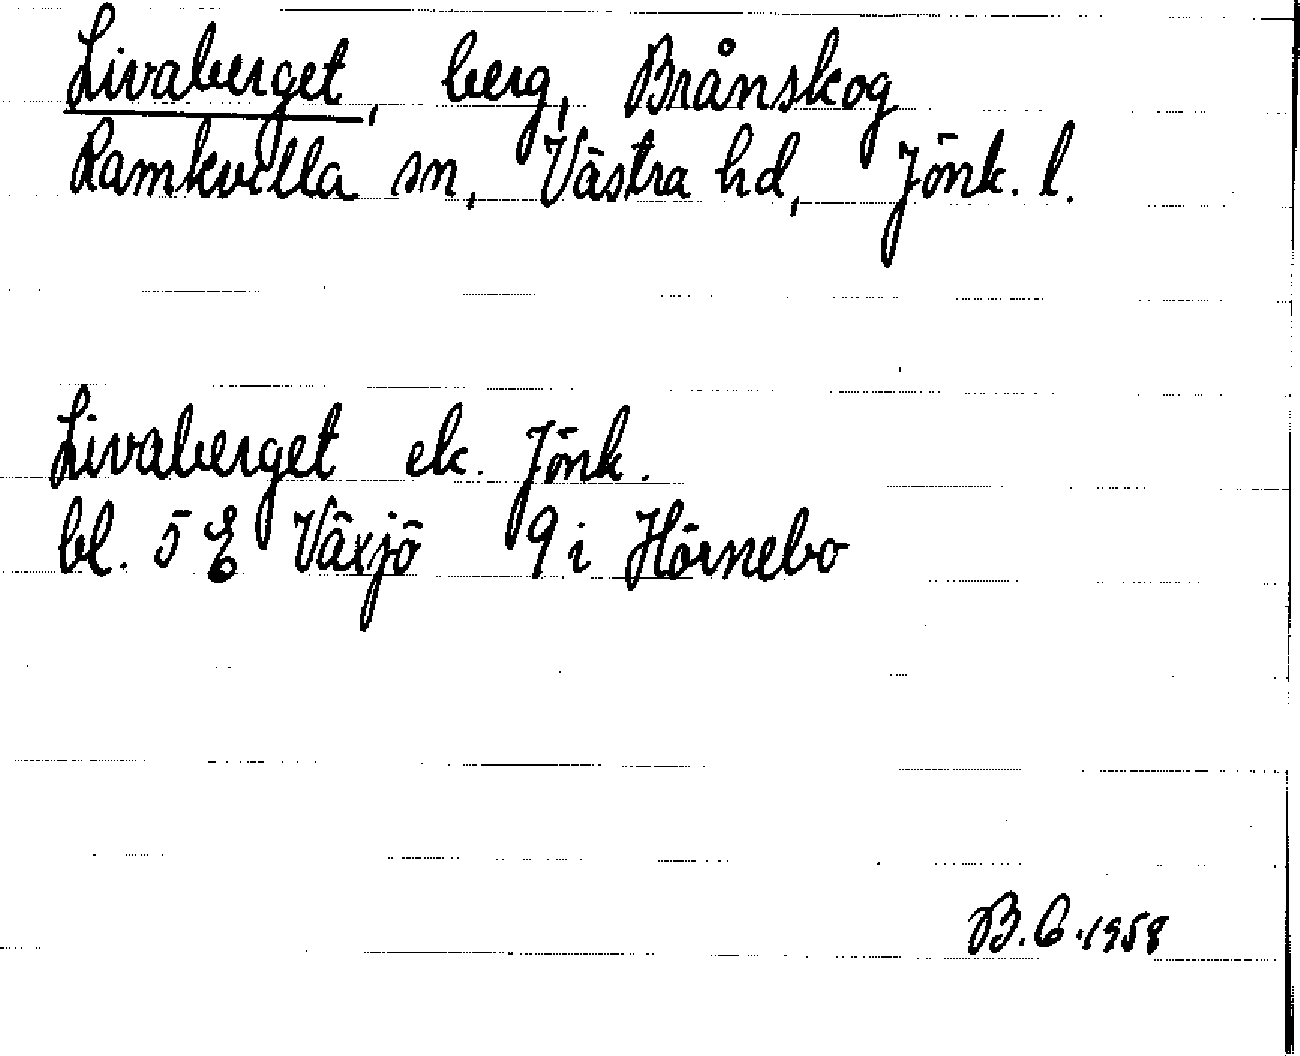 Livaberget, berg, Brånskog
Ramkvilla sn, Västra hd, Jönk. l.
Livaberget ek. Jönk.
bl. 5 E Växjö 9 i Hörnebo
B.C.1958